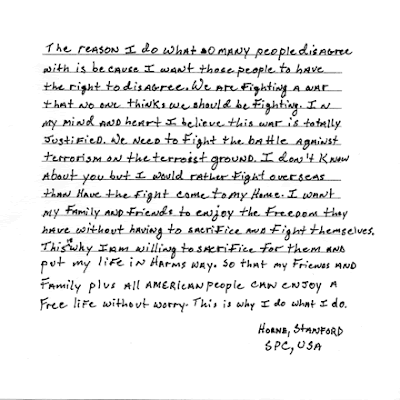 The reason I do what so many people disagree
with is because I want those people to have
the right to disagree. We are fighting a war
that no one thinks we should be fighting. In
my mind and heart I believe this war is totally
justified. We need to fight the battle against
terrorism on the terroist ground. I don't know
about you but I would rather fight overseas
than have the fight come to my home. I want
my family and friends to enjoy the freedom they
have without having to sacrifice and fight themselves.
This is why I am willing to sacrifice for them and
put my life in harms way. So that my friends and
family plus all American people can enjoy a
free life without worry. This is why I do what I do.
Horne, Stanford
SPC, USA